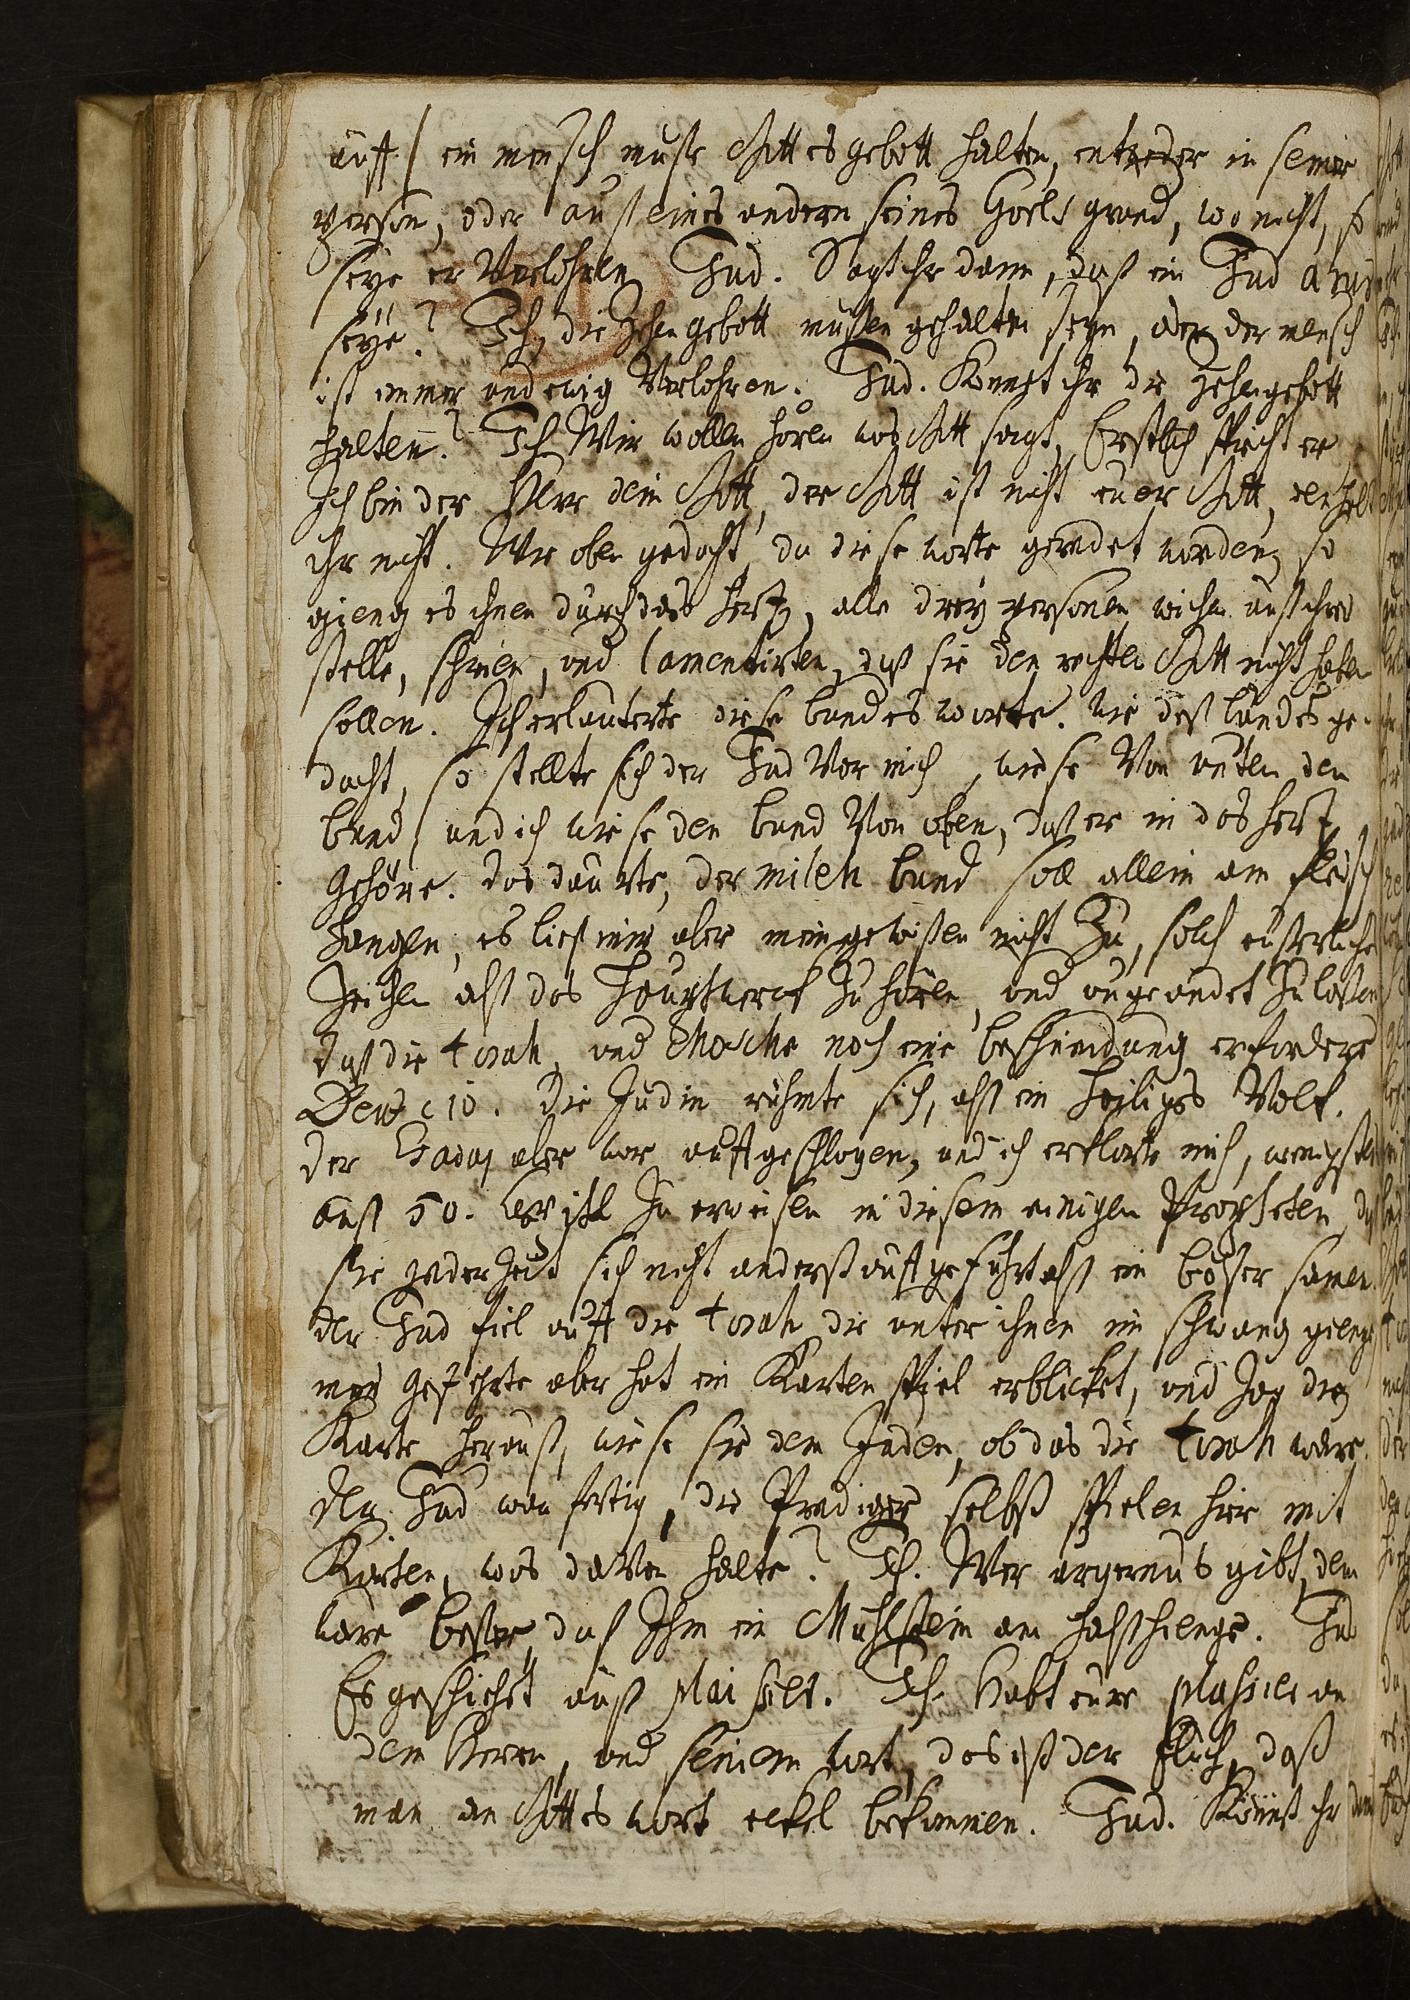 auff/ ein mensch muße Gottes gebott halten, entweder in seiner
person, oder auß eines andern seines Goels grund, wo nicht, so
seye er Verlohren. Jud. Sagt ihr dann, daß ein Jud arur
seye? Ich, die Zehen gebott mußen gehalten seyn, oder der mensch
ist immer und ewig Verlohren. Jud. Könnt ihr die Zehen gebott
halten? Ich Wir wollen hören was Gott sagt, Erstlich spricht er
Ich bin der Herr dein Gott, der Gott ist nicht euer Gott, den habt
ihr nicht. Wie oben gedacht, da diese worte geredet worden, so
gieng es ihnen durch das hertz, alle drey personen wichen auß ihrer
stelle, schrien, und lamentirten, daß sie den rechten Gott nicht haben
sollen. Ich erlauterte diese bundes worte. Wie deß bundes ge-
dacht, so stellte sich der Jud Vor mich, wiese Von unten den
bund/ und ich wiese den bund Von oben, daß er in das hertz
gehöre. das daurte, der milah bund soll allein am fleisch
hangen, es ließ mir aber mein gewißen nicht Zu, solch eußerliche
Zeichen alß das Hauptwerck Zu hören, und ungeandet Zu laßen
daß die torah, und Mosche noch eine beschneidung erfordere
Deut. c 10. Die Judin rühmte sich, alß ein heiliges Volck.
Der aber war auffgeschlagen, und ich erklarte mich, wenigstens
auß 50. Zu erweisen in diesem einigen Propheten, daß
sie jederZeit sich nicht anderß auffgeführt alß ein böser samen.
der Jud fiel auff die torah die unter ihnen im schwang gienge
mein Gefehrte aber hat ein Kartenspiel erblicket, und Zog drey
Karte herauß, wiese sie dem Juden, ob das die torah ware.
der Jud war fertig, die Prediger selbst spielen hier mit
Karten, was davon halte? Ich. Wer argernus gibt, dem
ware beßer, daß Ihm ein Muhlstein am halß hienge. Jud
Es geschichet auß plaisir. Ich. Habt eure plaisir an
dem Herrn, und seinem wort, das ist der fluch, daß
man an Gottes wort eckel bekommen. Jud. Könnt ihr dann